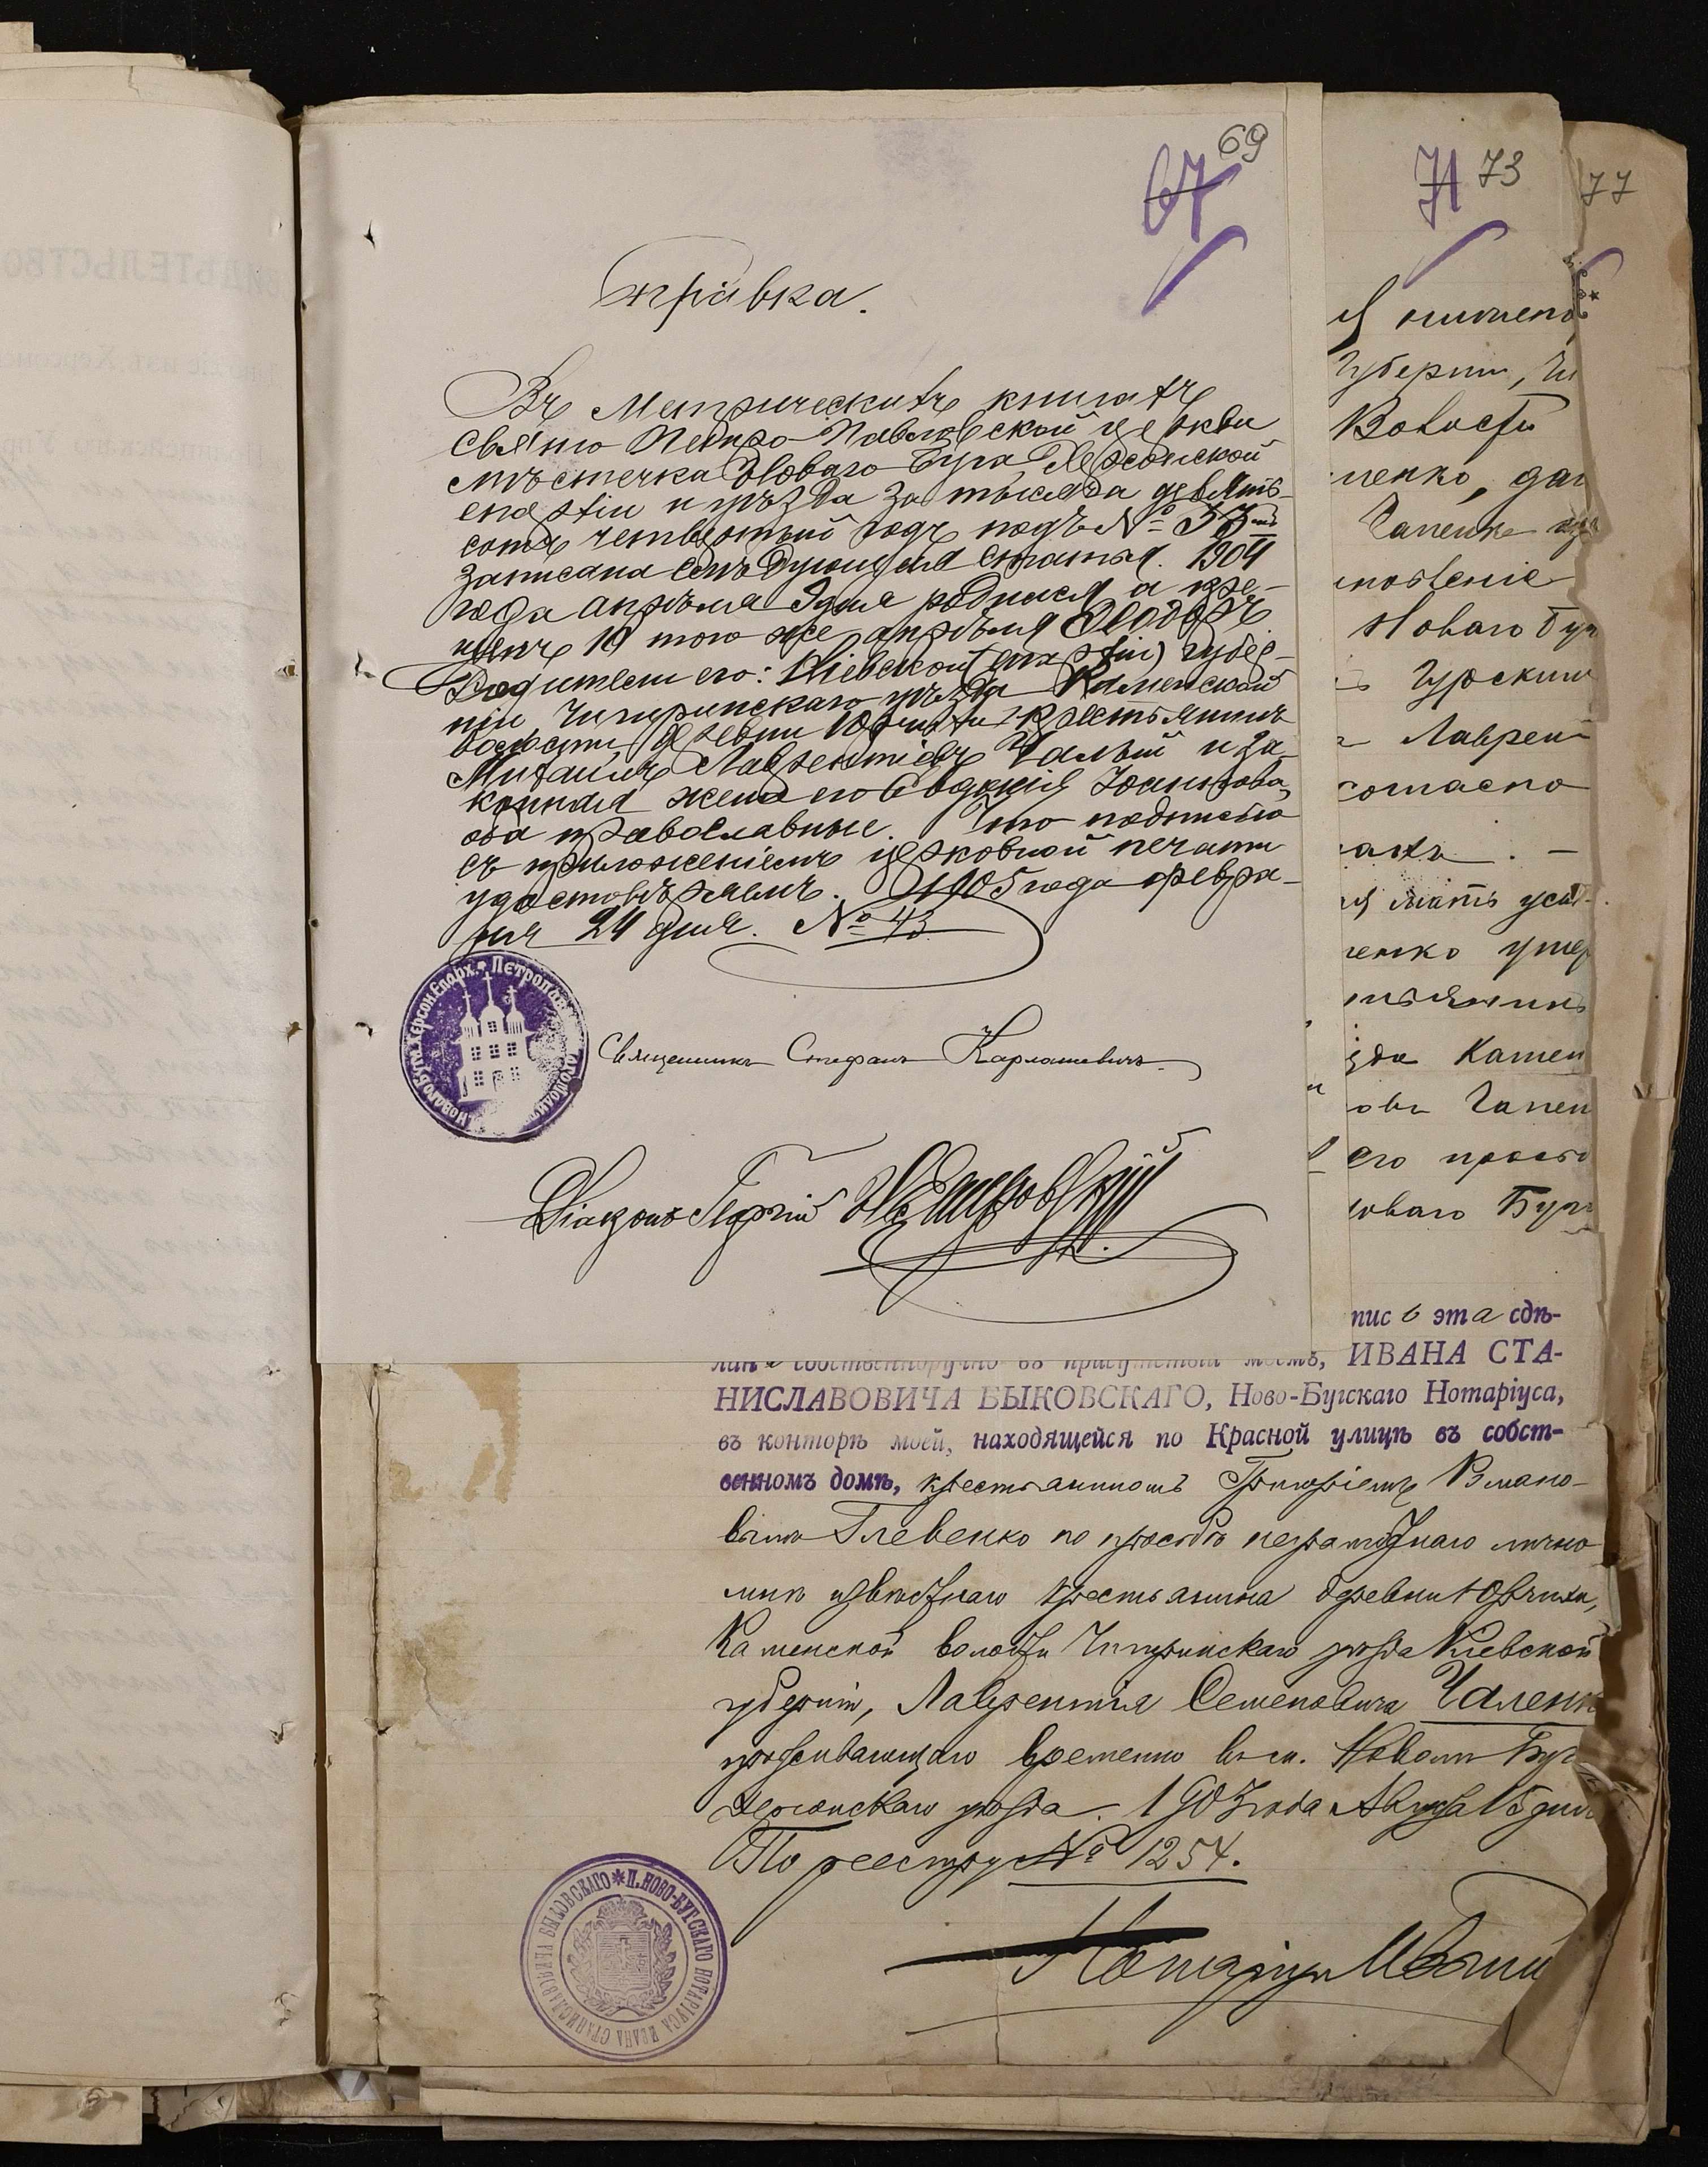 69
67
71 73
77
Справка.
Въ Метрическихъ книгахъ
Свято Петро-Павловской церкви
мѣстечка Новаго Буга Херсонской
епархiи и уѣзда за тысяча девять-
сотъ четвертый годъ подъ №
записана слѣдующая статья. 1904
года апрѣля 9 дня родился а кре-
щенъ 10 того же апрѣля Ѳеодоръ
Родители его: Кiевской (епархiи) губер-
нiи, Чигиринскаго уѣзда Каменской
волости деревни Юрчихи крестьянинъ
Михаилъ Лаврентiевъ Чалый и за-
конная жена его Евдокiя Iоаннова,
оба православные. Что подписью
съ приложенiемъ церковной печати
удостовѣряемъ. 1905 года февра-
ля 24 дня. № 43
Священникъ Стефанъ Карлашевичъ
Дiаконъ Георгiй
Я нижепо
Губернiи, Чи
Волости
ленко, да
Чаленк
новленiе
Новаго Буг
Гурским
Лаврен
согласно
ахъ. —
ленко умер
стьянинъ
ѣзда Камен
овъ Чален
его прось
Новаго Буг
пись эта сдѣ-
лана собственноручно въ присутствiи моемъ, ИВАНА СТА-
НИСЛАВОВИЧА БЫКОВСКАГО, Ново-Бугскаго Нотарiуса,
въ конторѣ моей, находящейся по Красной улицѣ въ собст-
венномъ домѣ, крестьяниномъ Григорiемъ
вымъ Глевенко по просьбѣ неграмотнаго лично
мнѣ извѣстнаго крестьянина деревни Юрчихи,
Каменской волости Чигиринскаго уѣзда Кiевской
губернiи, Лаврентiя Семеновича Чаленк
проживающаго временно въ м. Новомъ Буг
Херсонскаго уѣзда. 1903 года Августа 15 дня
По реестру № 1254.
Нотарiусъ
НОВАГО БУГА ХЕРСОН. ЕПАРХ. ПЕТРОПАВ
* П. НОВО-БУГСКАГО НОТАРIУСА ИВАНА СТАНИСЛАВОВИЧА БЫКОВСКАГО